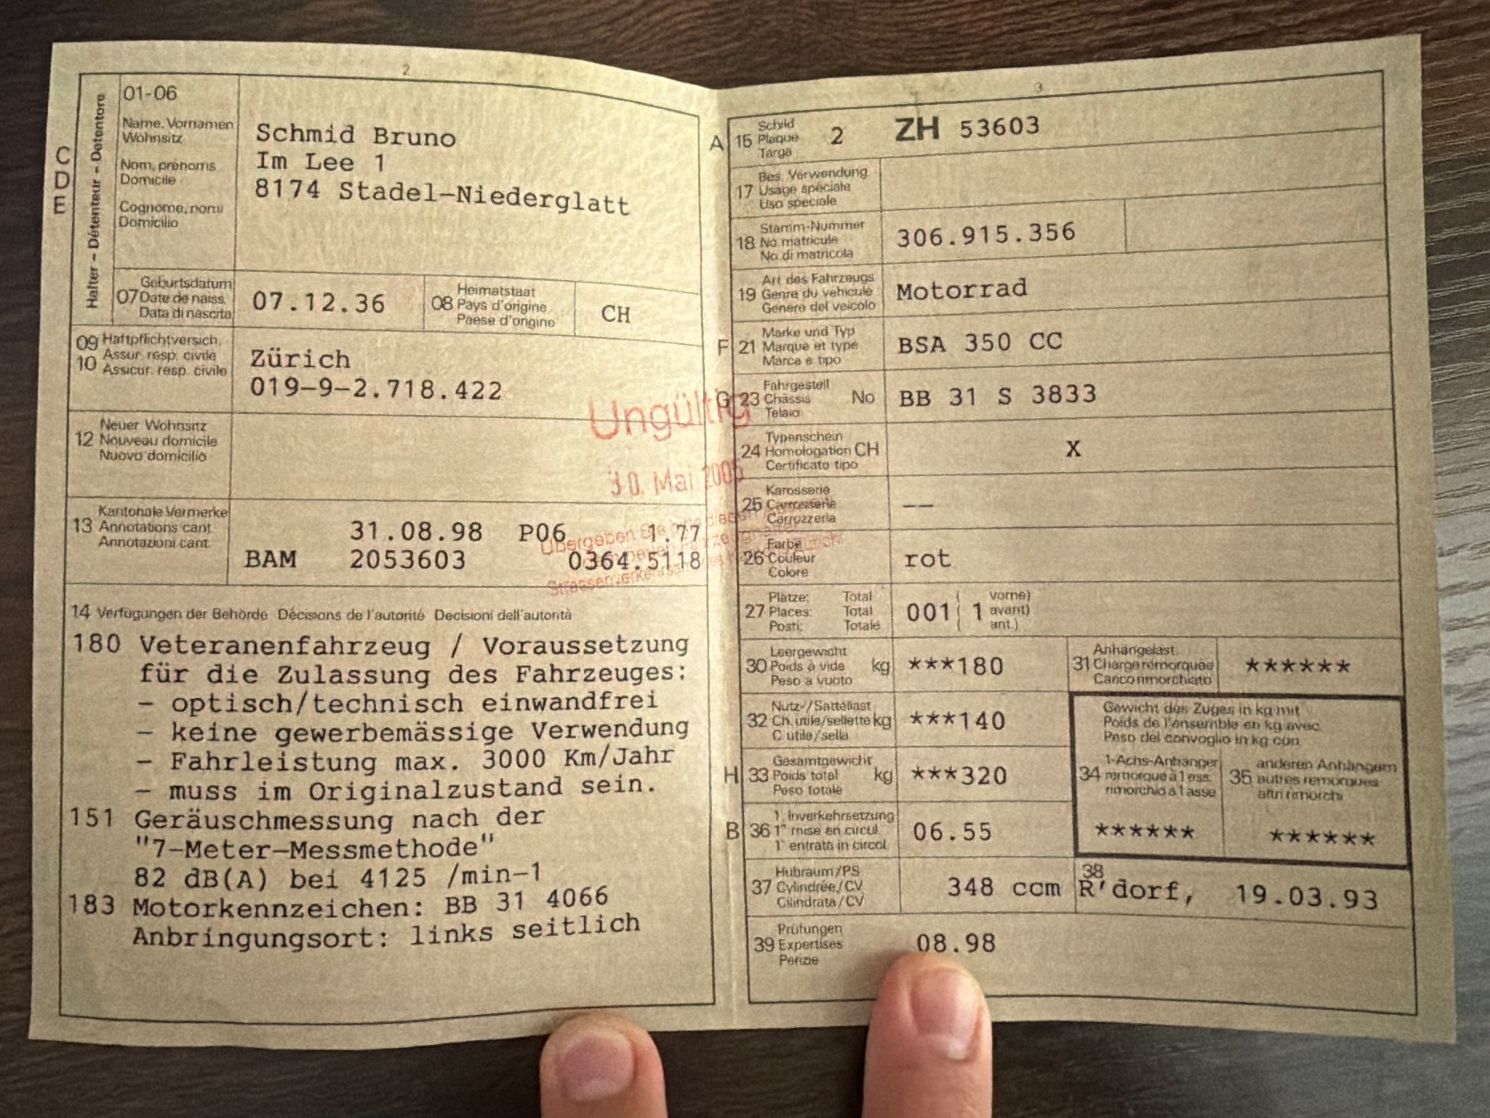 2
01-06
Name, Vornamen
Wohnsitz
Nom, prénoms
Domicile
Cognome, nomi
Domicilio
C
D
E
Halter – Détenteur – Detentore
Schmid Bruno
Im Lee 1
8174 Stadel-Niederglatt
07 Geburtsdatum
Date de naiss.
Data di nascita
07.12.36
08 Heimatstaat
Pays d'origine
Paese d'origine
CH
09 Haftpflichtversich.
10 Assur. resp. civile
Assicur. resp. civile
Zürich
019-9-2.718.422
12 Neuer Wohnsitz
Nouveau domicile
Nuovo domicilio
Ungültig
30. Mai 2005
13 Kantonale Vermerke
Annotations cant.
Annotazioni cant.
31.08.98 P06 1.77
BAM 2053603 0364.5118
Übergeben Sie
14 Verfügungen der Behörde Décisions de l'autorité Decisioni dell'autorità
180 Veteranenfahrzeug / Voraussetzung
für die Zulassung des Fahrzeuges:
- optisch/technisch einwandfrei
- keine gewerbemässige Verwendung
- Fahrleistung max. 3000 Km/Jahr
- muss im Originalzustand sein.
151 Geräuschmessung nach der
"7-Meter-Messmethode"
82 dB(A) bei 4125 /min-1
183 Motorkennzeichen: BB 31 4066
Anbringungsort: links seitlich
3
A 15 Schild
Plaque
Targa
2 ZH 53603
17 Bes. Verwendung
Usage spéciale
Uso speciale
18 Stamm-Nummer
No matricule
No di matricola
306.915.356
19 Art des Fahrzeugs
Genre du véhicule
Genere del veicolo
Motorrad
F 21 Marke und Typ
Marque et type
Marca e tipo
BSA 350 CC
G 23 Fahrgestell
Châssis No
Telaio
BB 31 S 3833
24 Typenschein
Homologation CH
Certificato tipo
X
25 Karosserie
Carrosserie
Carrozzeria
--
26 Farbe
Couleur
Colore
rot
27 Plätze: Total ( vorne)
Places: Total ( avant)
Posti: Totale ( ant.)
001 1
30 Leergewicht
Poids à vide kg
Peso a vuoto
***180
31 Anhängelast
Charge remorquée
Carico rimorchiato
******
32 Nutz-/Sattellast
Ch. utile/sellette kg
C. utile/sella
***140
Gewicht des Zuges in kg mit
Poids de l'ensemble en kg avec
Peso del convoglio in kg con
H 33 Gesamtgewicht
Poids total kg
Peso totale
***320
34 1-Achs-Anhänger
remorque à 1 ess.
rimorchio a 1 asse
******
35 anderen Anhängern
autres remorques
altri rimorchi
******
B 36 1. Inverkehrsetzung
1e mise en circul.
1a entrata in circol.
06.55
37 Hubraum/PS
Cylindrée/CV
Cilindrata/CV
348 ccm
38
R'dorf, 19.03.93
39 Prüfungen
Expertises
Perizie
08.98